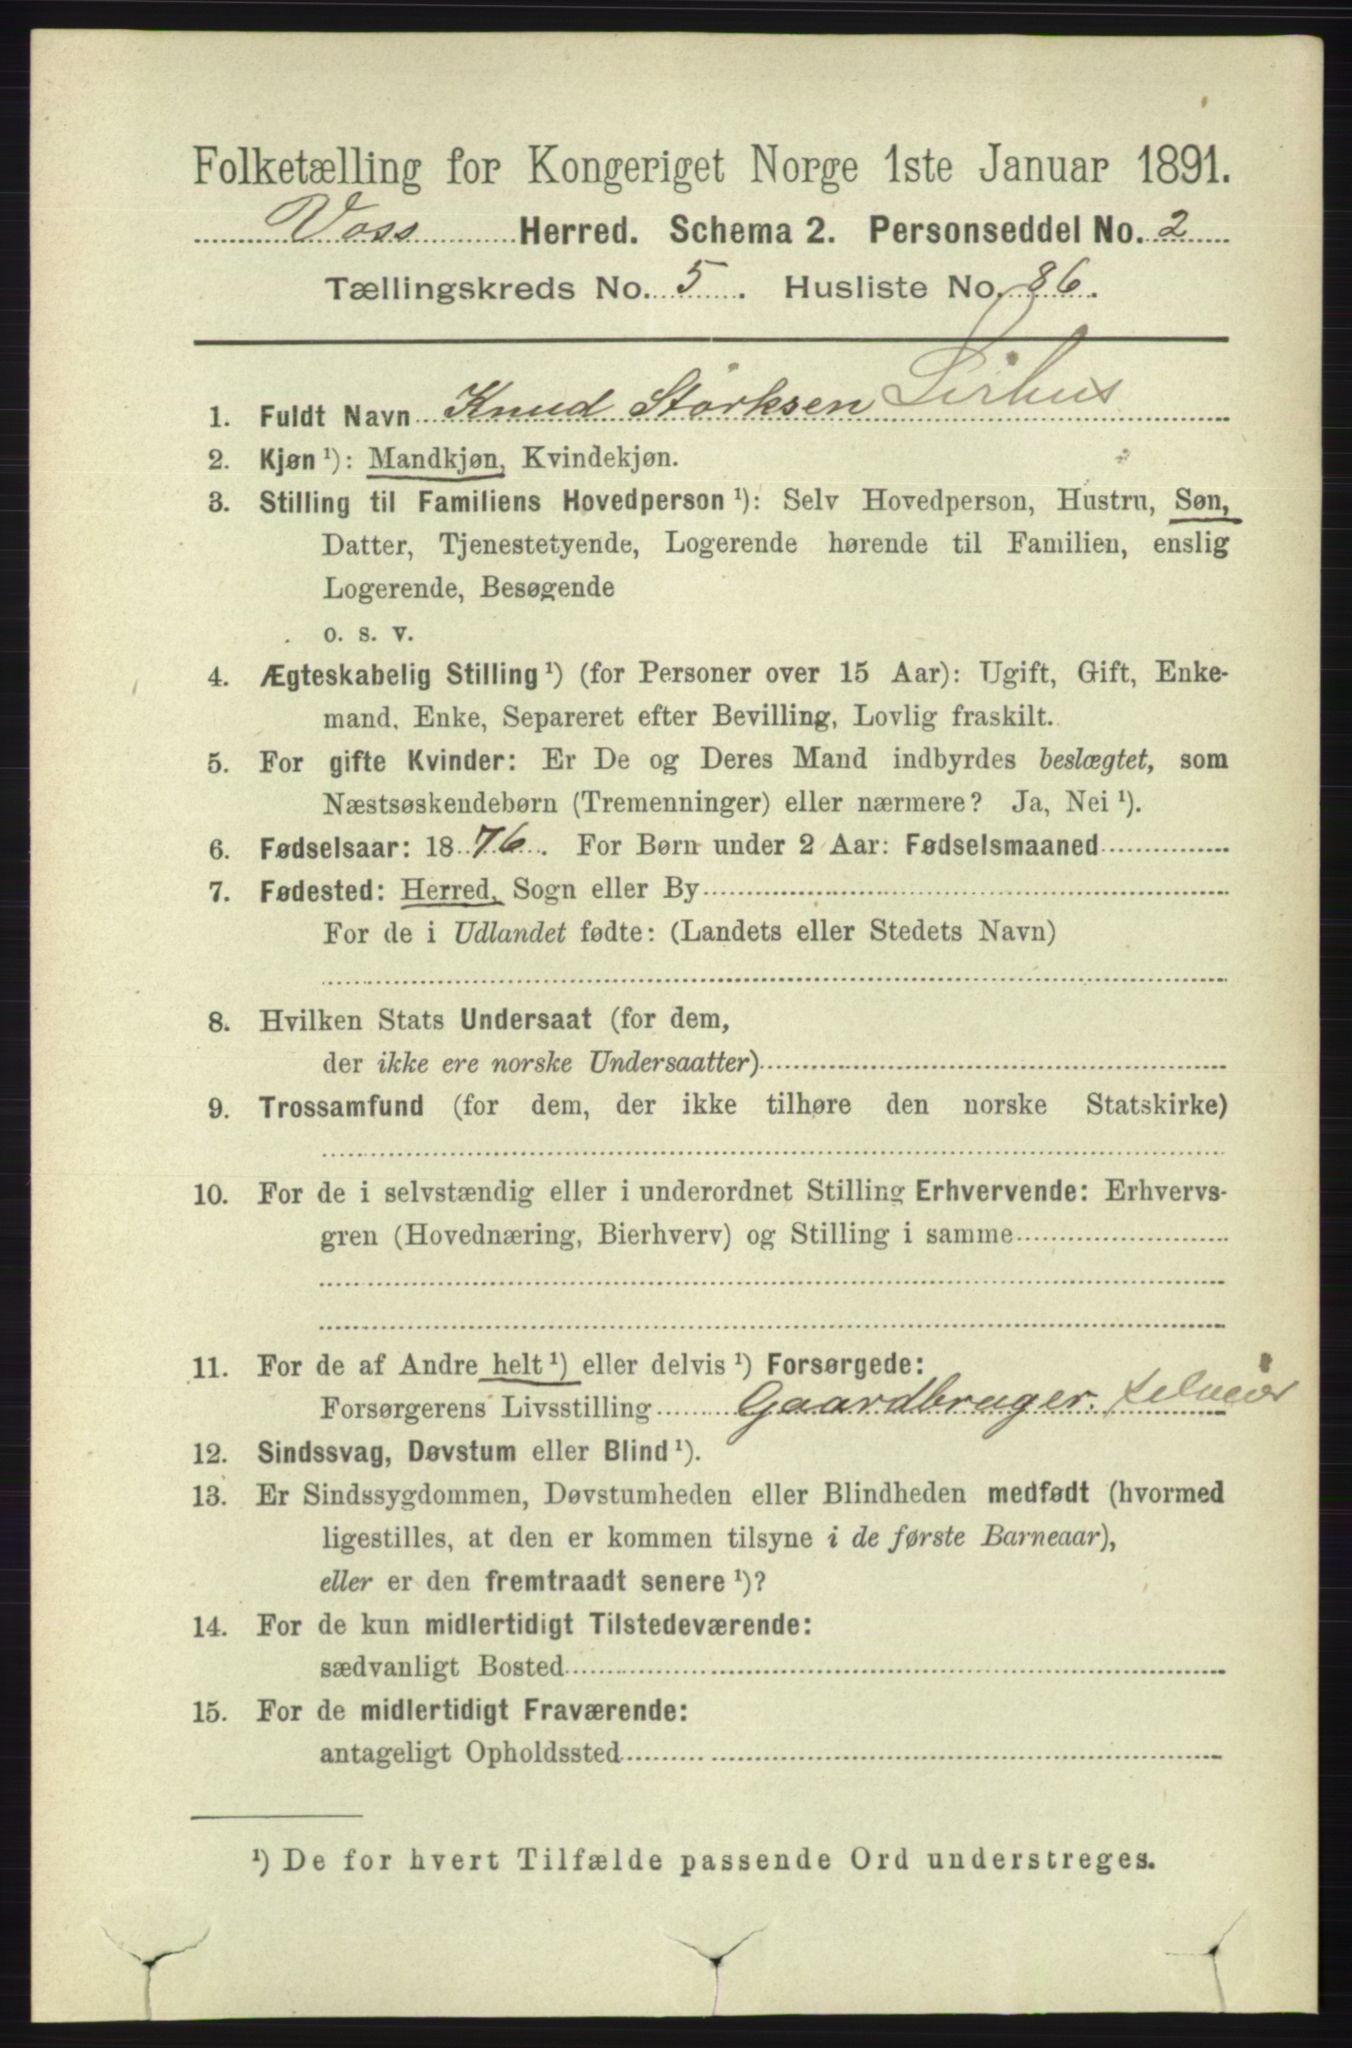 Folketælling for Kongeriget Norge 1ste Januar 1891.
Voss Herred. Schema 2. Personseddel No. 2
Tællingskreds No. 5. Husliste No. 86.
1. Fuldt Navn Knud Størksen Lirhus
2. Kjøn ¹): Mandkjøn, Kvindekjøn.
3. Stilling til Familiens Hovedperson ¹): Selv Hovedperson, Hustru, Søn,
Datter, Tjenestetyende, Logerende hørende til Familien, enslig
Logerende, Besøgende
o. s. v.
4. Ægteskabelig Stilling ¹) (for Personer over 15 Aar): Ugift, Gift, Enke-
mand, Enke, Separeret efter Bevilling, Lovlig fraskilt.
5. For gifte Kvinder: Er De og Deres Mand indbyrdes beslægtet, som
Næstsøskendebørn (Tremenninger) eller nærmere? Ja, Nei ¹).
6. Fødselsaar: 1876. For Børn under 2 Aar: Fødselsmaaned
7. Fødested: Herred, Sogn eller By
For de i Udlandet fødte: (Landets eller Stedets Navn)
8. Hvilken Stats Undersaat (for dem,
der ikke ere norske Undersaatter)
9. Trossamfund (for dem, der ikke tilhøre den norske Statskirke)
10. For de i selvstændig eller i underordnet Stilling Erhvervende: Erhvervs-
gren (Hovednæring, Bierhverv) og Stilling i samme
11. For de af Andre helt ¹) eller delvis ¹) Forsørgede:
Forsørgerens Livsstilling Gaardbruger. selveier
12. Sindssvag, Døvstum eller Blind ¹).
13. Er Sindssygdommen, Døvstumheden eller Blindheden medfødt (hvormed
ligestilles, at den er kommen tilsyne i de første Barneaar),
eller er den fremtraadt senere ¹)?
14. For de kun midlertidigt Tilstedeværende:
sædvanligt Bosted
15. For de midlertidigt Fraværende:
antageligt Opholdssted
¹) De for hvert Tilfælde passende Ord understreges.